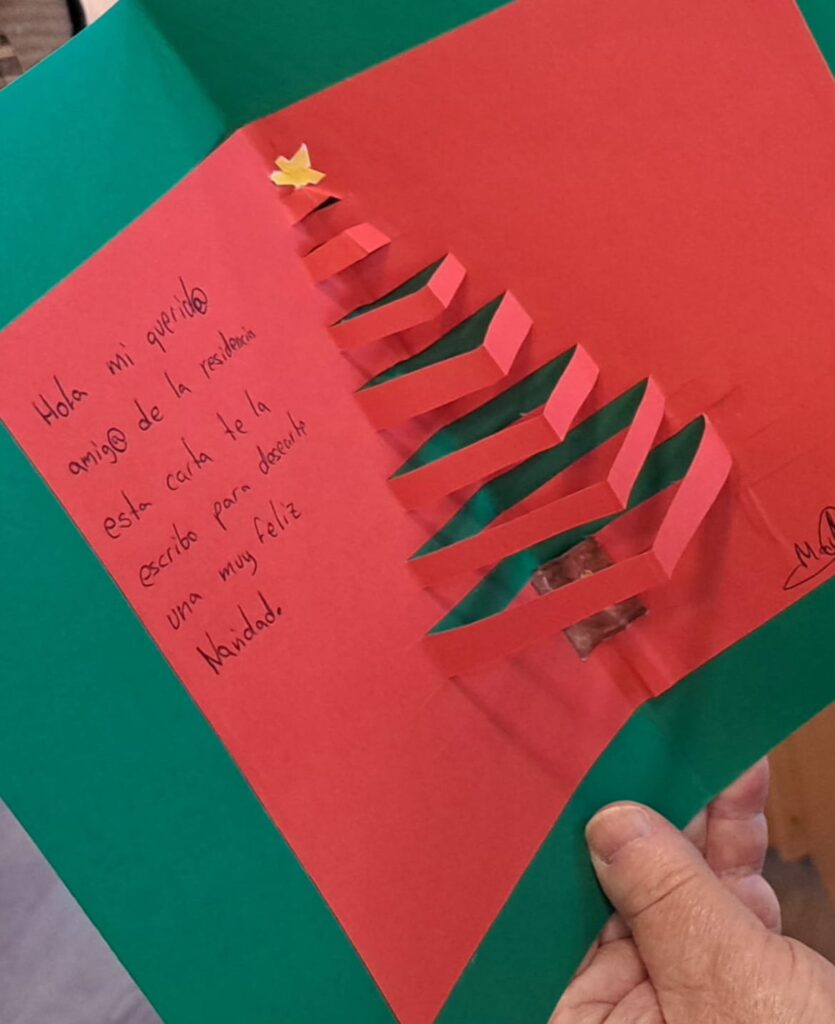 Hola mi querid@
amig@ de la residencia
esta carta te la
escribo para desearte
una muy feliz
Navidad.